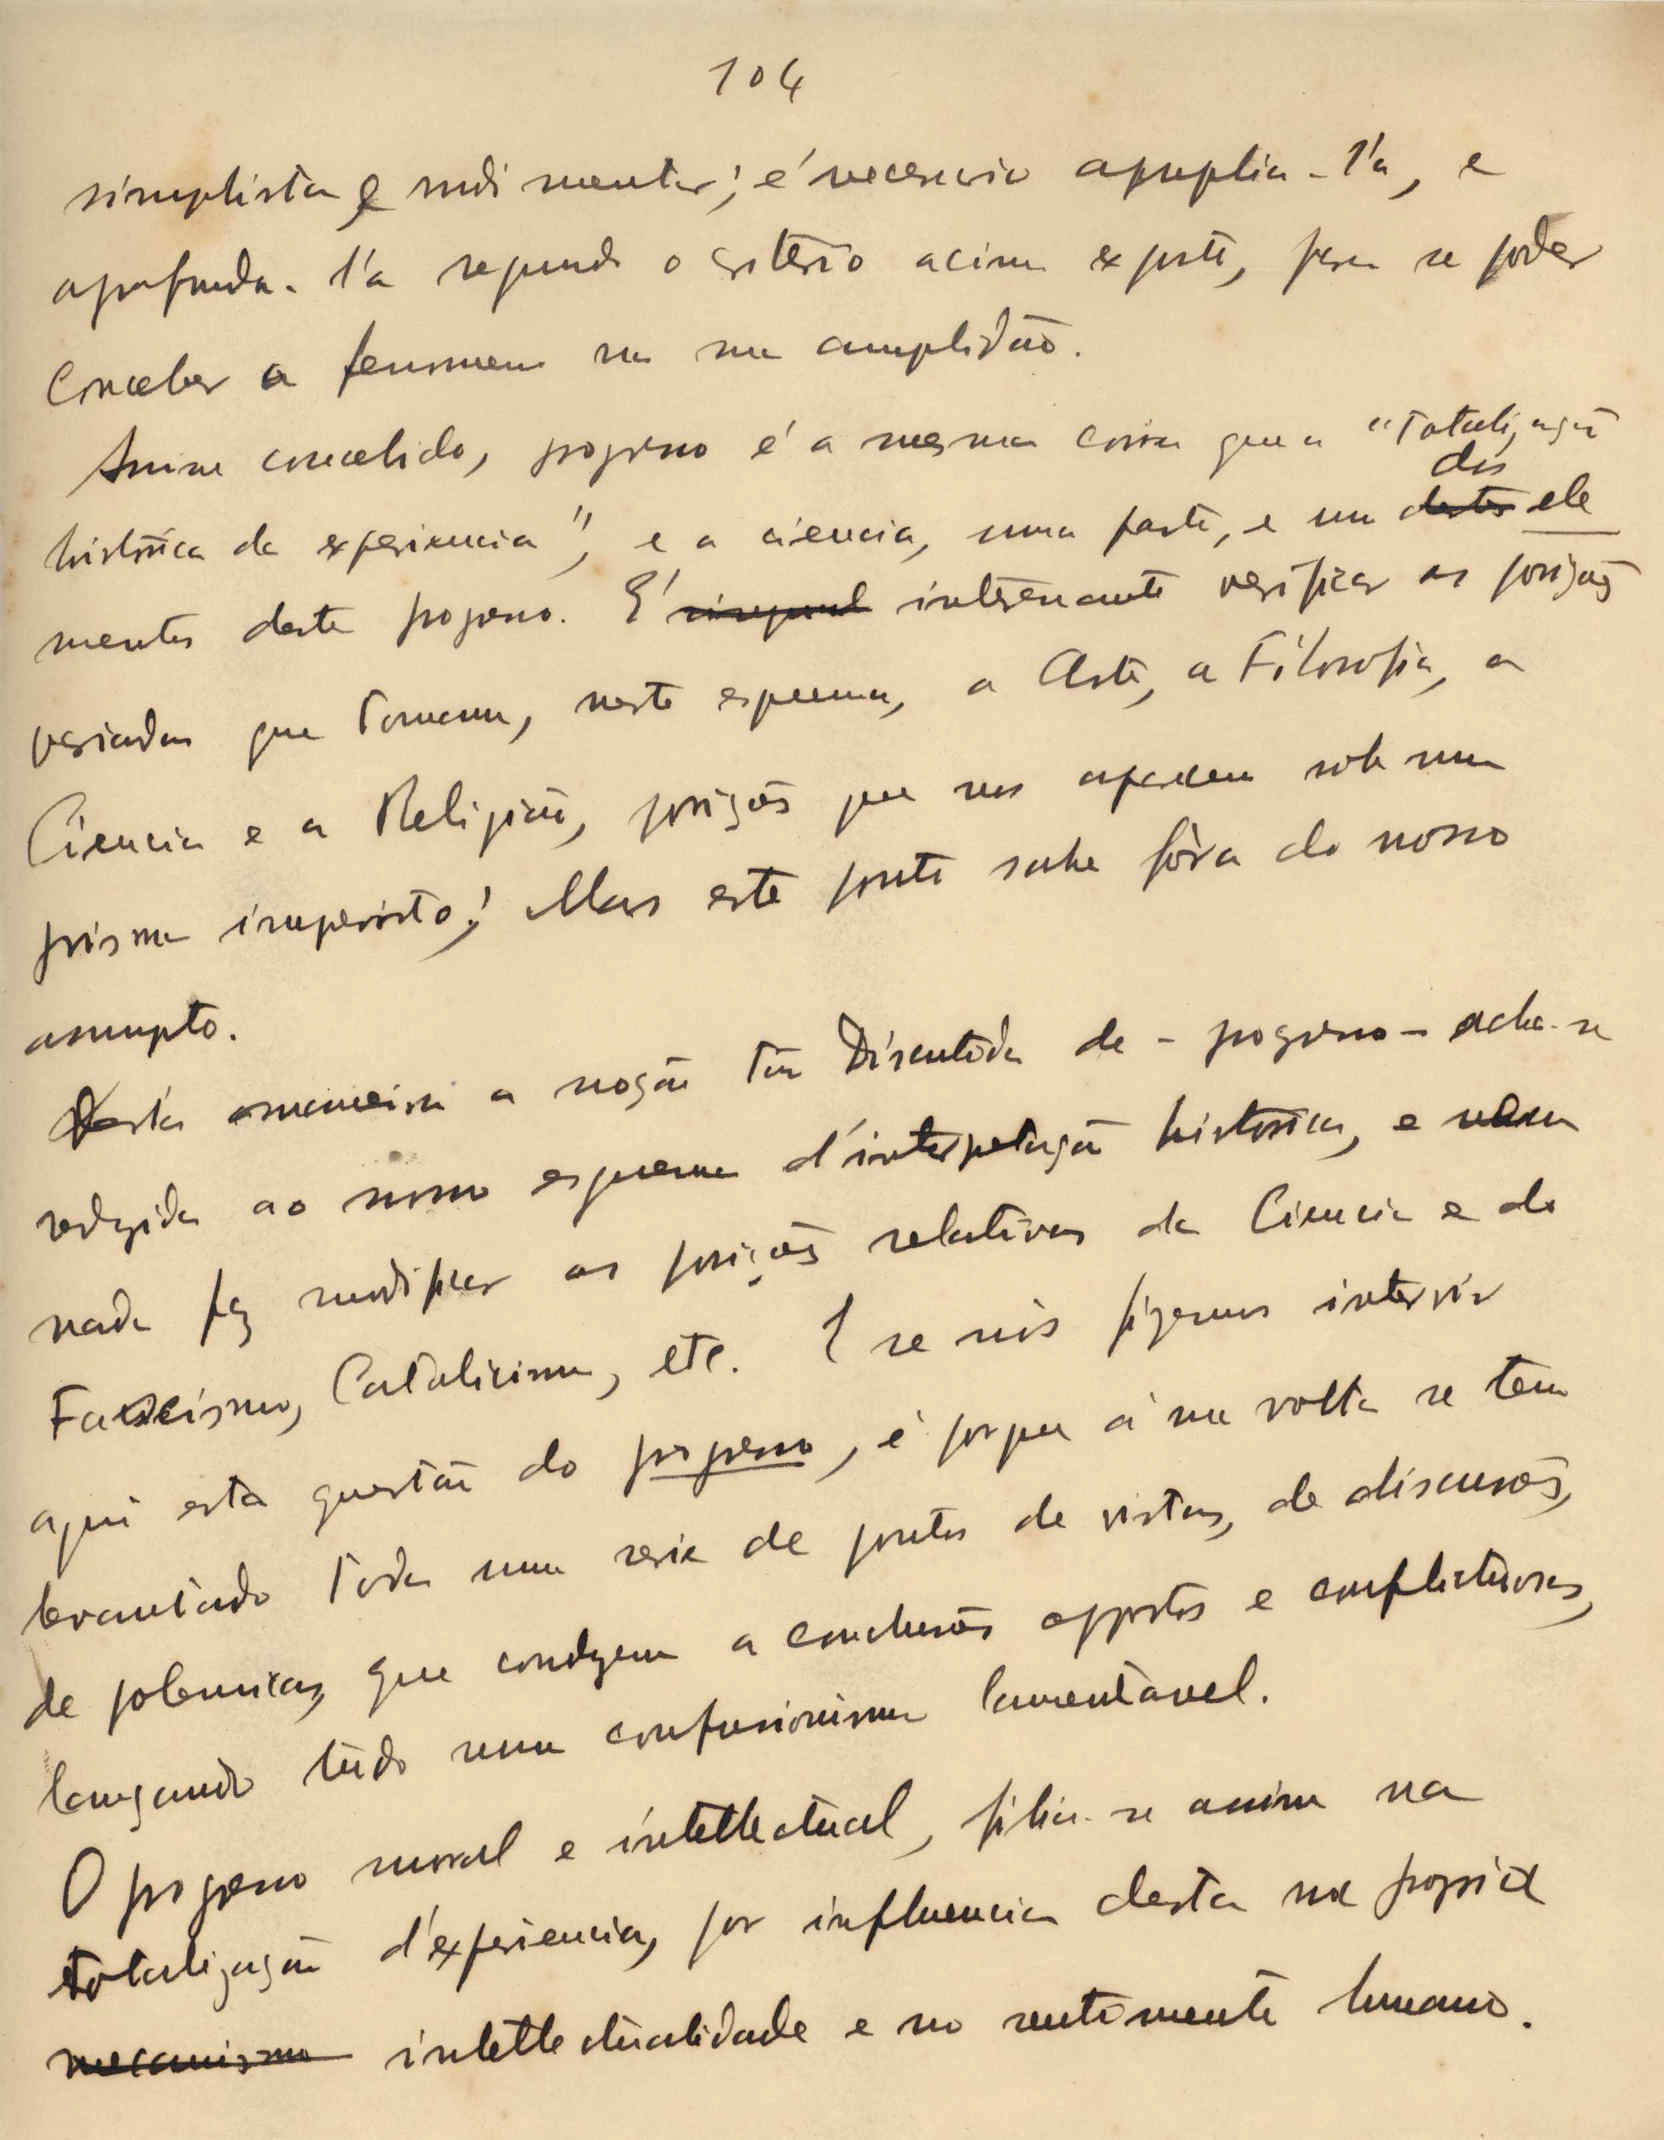 104
simplista e rudimentar; é necessario amplia-l'a, e
aprofunda-l'a segundo o criterio acima exposto, para se poder
conceber o fenomeno na sua amplidão.
Assim concebido, progresso é a mesma coisa que a "Totalização
historica da experiencia", e a ciencia, uma parte, e um destes dos ele
mentos deste progresso. E' singul interessante verificar as posições
variadas que tomam, neste esquema, a Arte, a Filosofia, a
Ciencia e a Religião, posições que nos aparecem sob um
prisma imprevisto! Mas este ponto sahe fóra do nosso
assumpto.
Desta maneira a noção tão Discutida de - progresso - acha-se
reduzida ao nosso esquema d'interpretação historica, e nem
nada fez modificar as posições relativas da Ciencia e do
Fascismo, Catolicismo, etc. E se nós fizemos intervir
aqui esta questão do progresso, é porque á sua volta se tem
levantado toda uma serie de pontos de vistas, de discussões,
de polemicas, que conduzem a conclusões oppostas e conflictuosas,
lançando tudo num confusionismo lamentavel.
O progresso moral e intellectual, filia-se assim na
totalização d'experiencia, por influencia desta na propria
mecanismo intellectualidade e no sentimento humano.